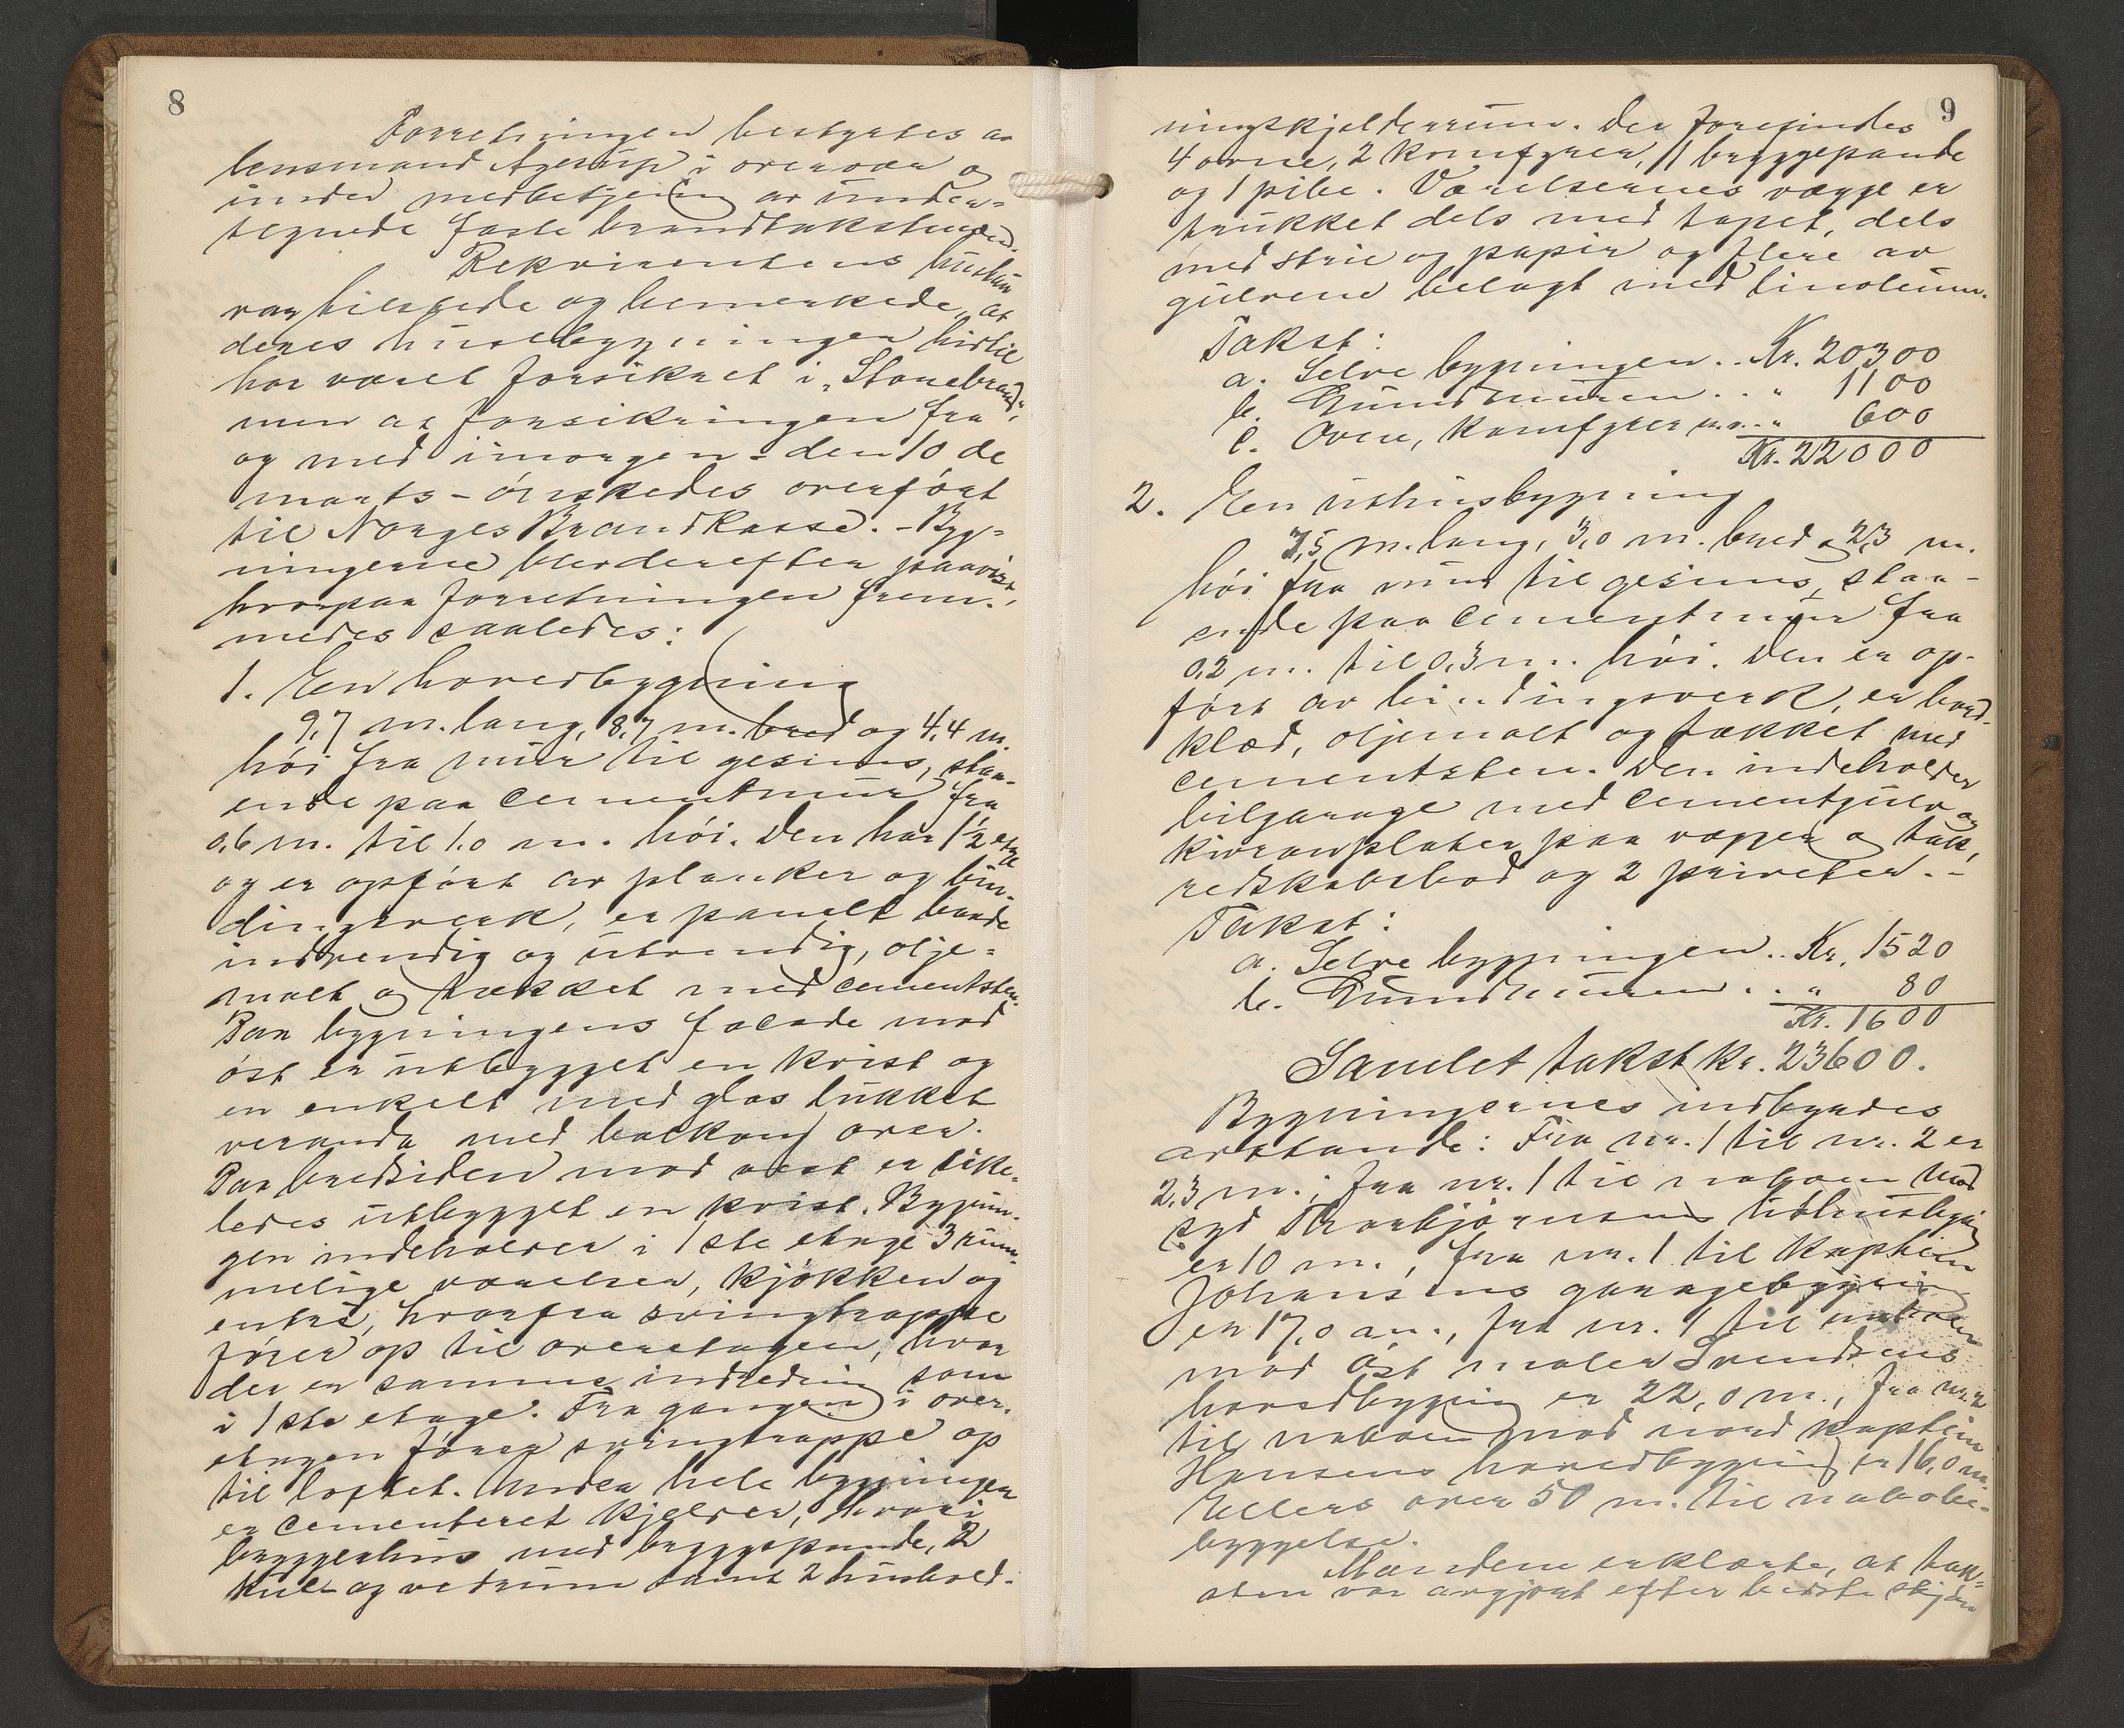 8
Forretningen bestyrtes av
lensmand Agerup i overvær og
under medbetjening av under-
tegnede faste brandtakstmænd.
Rekvirentens hustru
var tilstede og bemerkede, at
deres husebygninger hittil
har været forsikret i "Storebrand",
men at forsikringen fra
og med imorgen - den 10 de
marts - ønskedes overført
til Norges Brandkasse. - Byg-
ningerne blev derefter paavist,
hvorpaa forretningen frem-
medes saaledes:
1. En hovedbygning
9,7 m. lang, 8,7 m. bred og 4,4 m.
høi fra mur til gesims, staa-
ende paa cementmur fra
0,6 m. til 1,0 m. høi. Den har 1½ etage
og er opført av planker og bin-
dingsverk, er panelt baade
indvendig og utvendig, olje-
malt og tækket med cementsten.
Paa bygningens facade mod
øst er utbygget en kvist og
en enkelt med glas lukket
veranda med balkong over.
Paa bredsiden mod vest er like-
ledes utbygget en kvist. Bygnin-
gen indeholder i 1ste etage 3 rum-
melige værelser, kjøkken og
entré, hvorfra svingtrappe
fører op til overetagen, hvor
der er samme indredning som
i 1ste etage. Fra gangen i over-
etagen fører svingtrappe op
til loftet. Under hele bygningen
er cementeret kjelder, hvori
bryggerhus med bryggepande, 2
kul- og vedrum samt 2 hushold-
9
ningskjelderrum. Der forefindes
4 ovne, 2 komfyrer, 1 bryggepande
og 1 pibe. Værelsernes vægge er
trukket dels med tapet, dels
med strie og papir og flere av
gulvene belagt med linoleum.
Takst:
a. Selve bygningen .. Kr. 20300
b. Grundmuren .. " 1100
c. Ovne, komfyrer m.v. .. " 600
Kr. 22000
2. En uthusbygning
7,5 m. lang, 3,0 m. bred og 2,3 m.
høi fra mur til gesims, staa-
ende paa cementmur fra
0,2 m. til 0,3 m. høi. Den er op-
ført av bindingsverk, er bord-
klæd, oljemalt og tækket med
cementsten. Den indeholder
bilgarage med cementgulv og
plater paa vægger og tak,
redskabsbod og 2 priveter. -
Takst:
a. Selve bygningen .. Kr. 1520
b. Grundmuren .. " 80
Kr. 1600
Samlet takst kr. 23600.
Bygningernes indbyrdes
avstande: Fra nr. 1 til nr. 2 er
2,3 m.; fra nr. 1 til naboen mod
syd Thorbjørnsens uthusbygning
er 10 m., fra nr. 1 til kaptein
Johansens garagebygning
er 17,0 m., fra nr. 1 til naboen
mod øst maler Svendsens
hovedbygning er 22,0 m., fra nr. 2
til naboen mod nord kaptein
Hansens hovedbygning er 16,0 m.
Ellers over 50 m. til nabobe-
byggelse.
Mændene erklærte, at tak-
sten var avgjort efter bedste skjøn